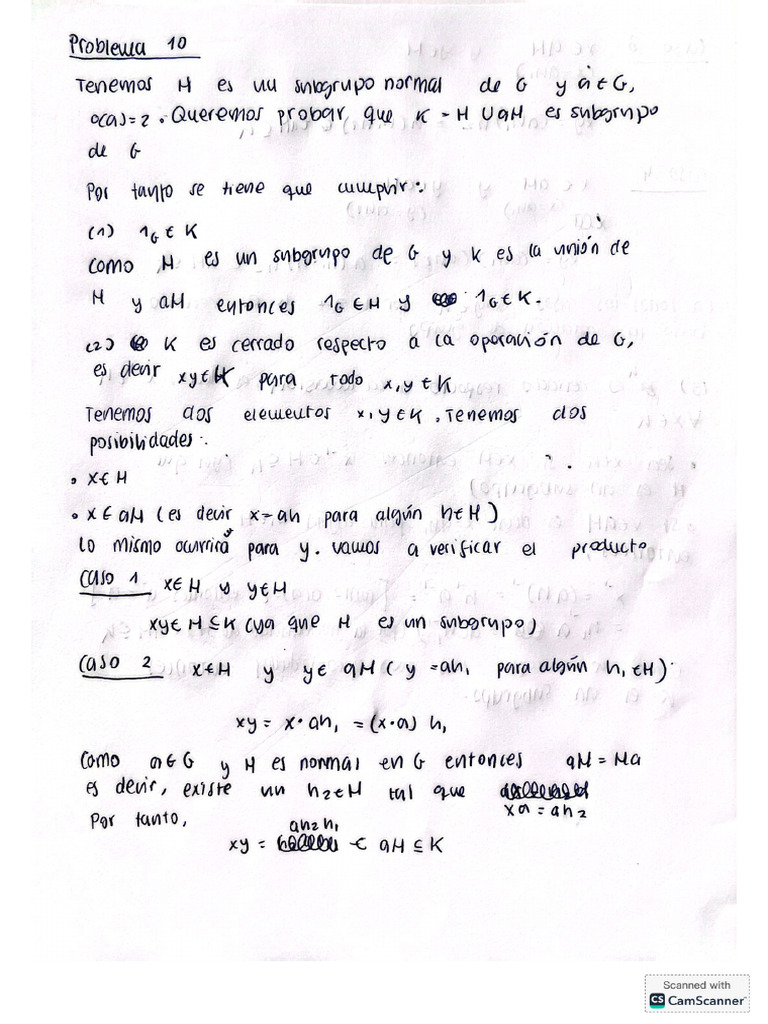 Problema 10
Tenemos H es un subgrupo normal de G y a ∈ G,
o(a)=2. Queremos probar que K = H ∪ aH es subgrupo
de G
Por tanto se tiene que cumplir:
(1) 1_G ∈ K
Como H es un subgrupo de G y K es la unión de
H y aH entonces 1_G ∈ H y 1_G ∈ K.
(2) K es cerrado respecto a la operación de G,
es decir xy ∈ K para todo x, y ∈ K
Tenemos dos elementos x, y ∈ K. Tenemos dos
posibilidades:
• x ∈ H
• x ∈ aH (es decir x = ah para algún h ∈ H)
Lo mismo ocurrirá para y. Vamos a verificar el producto
Caso 1 x ∈ H y y ∈ H
xy ∈ H ⊆ K (ya que H es un subgrupo)
Caso 2 x ∈ H y y ∈ aH (y = ah₁ para algún h₁ ∈ H)
xy = x · ah₁ = (x·a) h₁
Como a ∈ G y H es normal en G entonces aH = Ha
es decir, existe un h₂ ∈ H tal que
xa = ah₂
Por tanto,
xy = ah₂h₁ ∈ aH ⊆ K
Scanned with
CS CamScanner